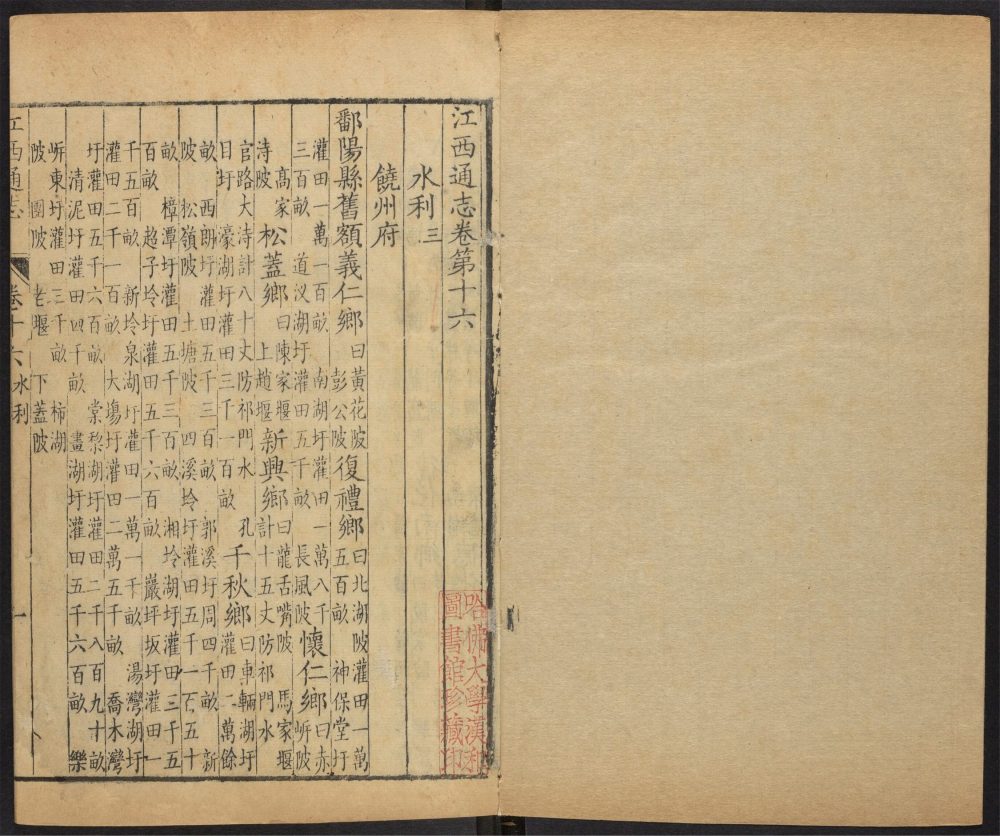 江西通志卷第十六
水利三
饒州府
鄱陽縣舊額義仁鄉曰黃花陂彭公陂復禮鄉曰北湖陂灌田一萬五百畝 神保堂圩
灌田一萬一百畝 南湖圩灌田一萬八千三百畝 道汊湖圩灌田五千畝 長風陂懷仁鄉曰赤岓陂
高家洔陂松蓋鄉曰陳家堰上趙堰新興鄉曰龍舌嘴陂 馬家堰計十五丈防祁門水
官路大洔計八十丈防祁門水 孔目圩 濠湖圩灌田三千一百畝千秋鄉曰車輛湖圩灌田二萬餘
畝 西朗圩灌田五千三百畝 郭溪圩周四千畝 新
陂 松嶺陂 土塘陂 四溪坽圩灌田五千一百五十
畝 樟潭圩灌田五千三百畝 湘坽湖圩灌田三千五
百畝 趙子坽圩灌田五千六百畝 巖坪坂圩灌田一
千五百畝 新坽泉湖圩灌田一萬一千畝 湯灣湖圩
灌田二千一百畝 大塲圩灌田二萬五千畝 喬木灣
圩灌田五千六百畝 棠黎湖圩灌田二千八百九十畝
清泥圩灌田四千畝 畫湖圩灌田五千六百畝 樂
岓東圩灌田三千畝 柿湖
陂 團陂 老堰 下蓋陂
江西通志 卷十六 水利 一
哈佛大學漢和
圖書館珍藏印